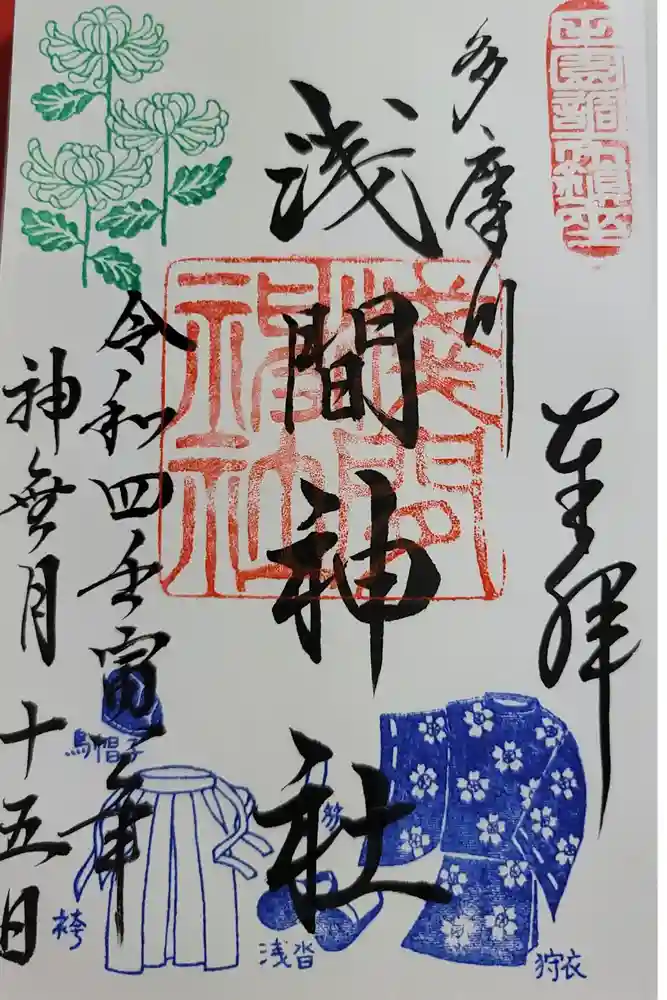 奉拝
多摩川
浅間神社
淺間
神社
令和四壬寅年
神無月十五日
烏帽子
笏
狩衣
浅沓
袴